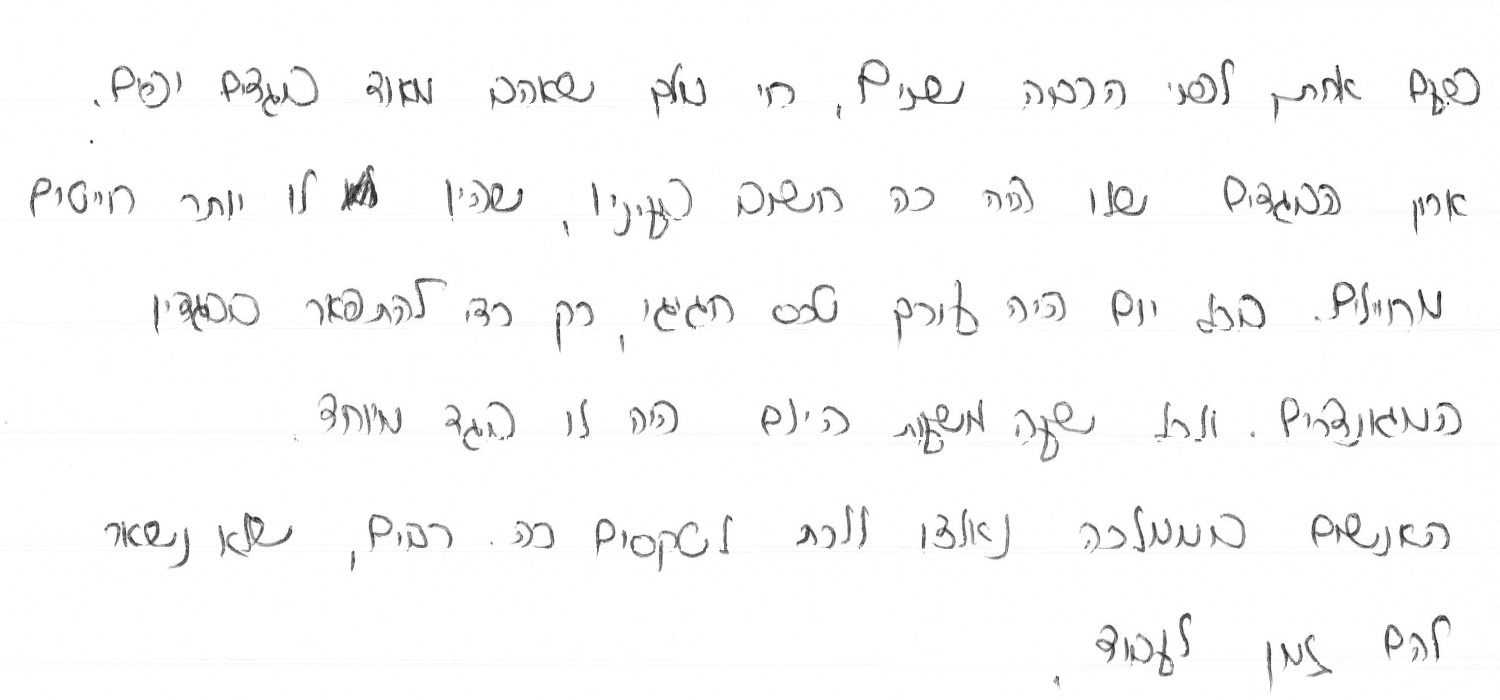 פעם אחת, לפני הרבה שנים, חי מלך שאהב מאוד בגדים יפים.
ארון הבגדים שלו היה כה חשוב בעיניו, שהיו לו יותר חייטים
מחיילים. בכל יום היה עורך טכס חגיגי, רק כדי להתפאר בבגדיו
המגונדרים. ולכל שעה משעות היום היה לו בגד מיוחד.
האנשים בממלכה נאלצו ללכת לטקסים כה רבים, שלא נשאר
להם זמן לעבוד.